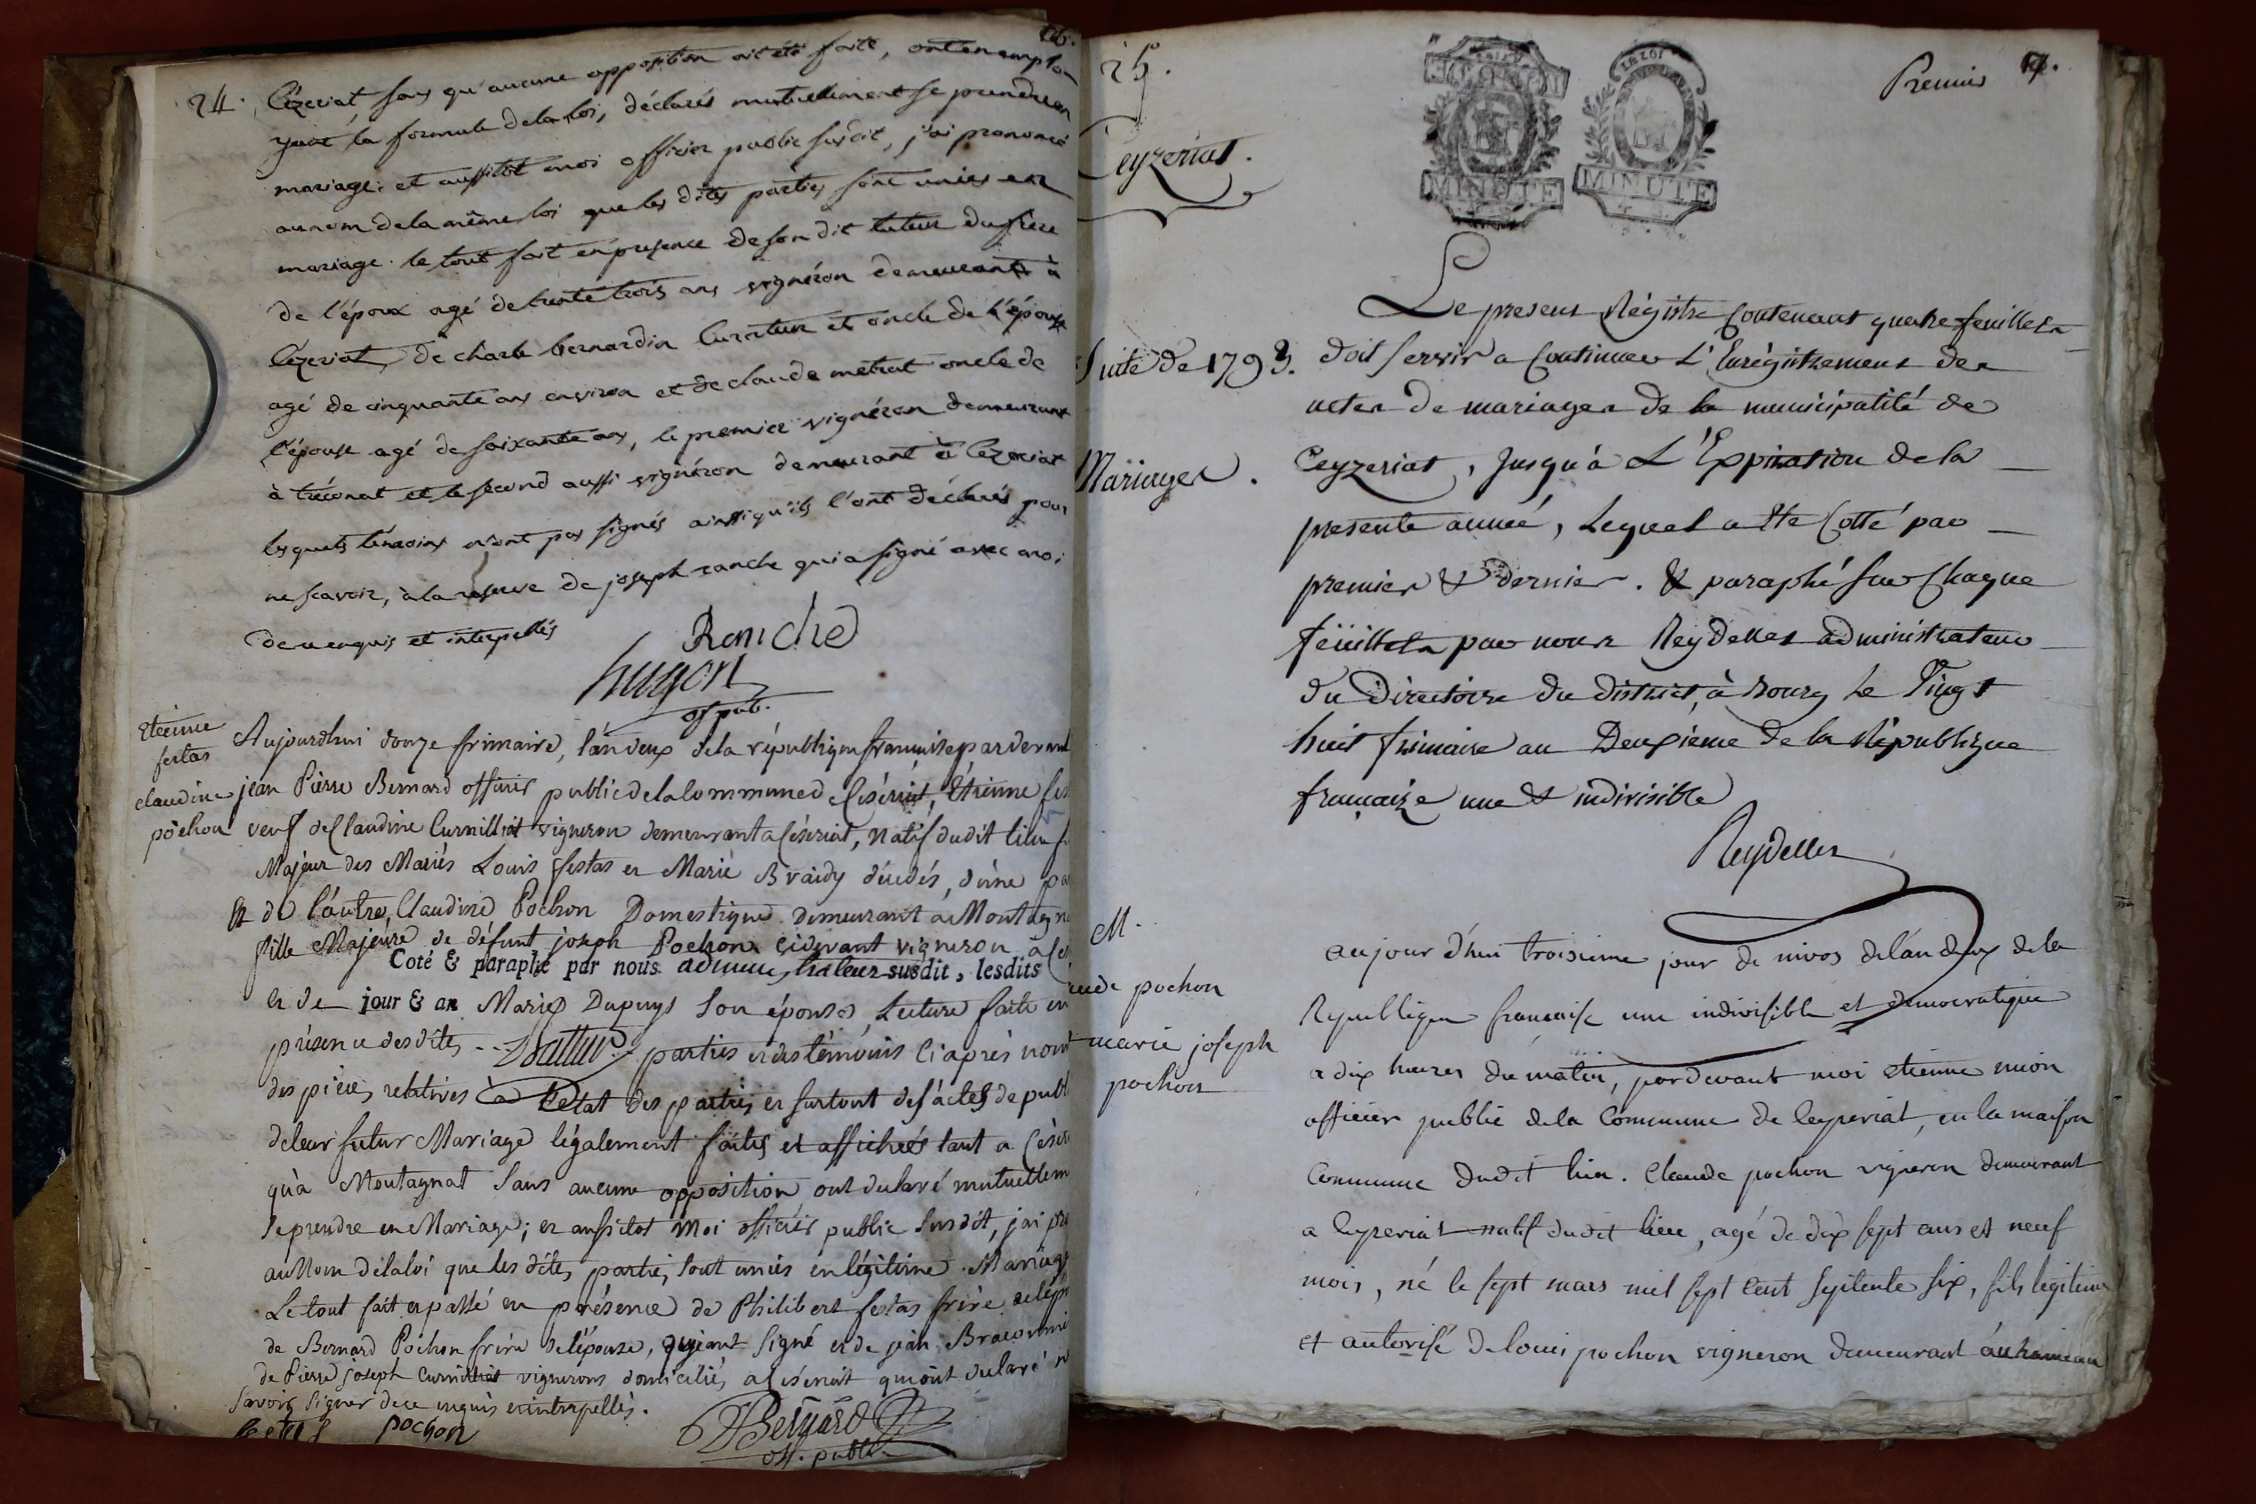 24.
Cézeriat, sans qu'aucune opposition ait été faite, ont en emplo-
yant la formule de la loi, déclarés mutuellement se prendre en
mariage. et aussitôt moi officier public susdit, j'ai prononcé
au nom de la même loi que les dites parties sont unies en
mariage. le tout fait en presence de son dit tuteur du frere
de l'époux agé de trente trois ans vignéron demeurant à
Cézeriat, de charle bernardin curateur et oncle de l'épouse
agé de cinquante ans environ et de claude metrat oncle de
l'épouse agé de soixante ans, le premier vignéron demeurant
à tréconat et le second aussi vignéron demeurant à Cezeriat
lesquels témoins n'ont pas signés ainsi qu'ils l'ont déclarés pour
ne scavoir, à la reserve de joseph ranche qui a signé avec moi
de ce enquis et interpellés
Ranche
hugon
of. pub.
Etienne
festas
claudine
pochon
Aujourdhui douze frimaire, l'an deux de la république française par devant
jean Pierre Bernard officier public de la Commune de Cézériat, Etienne fes
veuf de Claudine Curnilliat vigneron demeurant a Cézeriat, natif dudit lieu
Majeur des Mariés Louis festas et Marie Braidy décédés, d'une pa
Et de l'autre, Claudine Pochon Domestique demeurant a Montagn
fille Majeure de défunt joseph Pochon cidevant vigneron à Cé
Coté & paraphé par nous administrateur susdit, lesdits
et de jour & an Marie Dupuys son épouse, Lecture faite en
présence desdites parties et des témoins ci après nom
des pièces relatives à l'état des parties et surtout des actes de publ
de leur futur Mariage légalement faites et affichées tant a Cézé
qu'à Montagnat sans aucune opposition ont declaré mutuellem
se prendre en Mariage; et aussitot Moi officier public susdit, j'ai pro
au Nom de la loi que les dites parties sont unies en légitime Mariage
Le tout fait et passé en présence de Philibert festas frère de l'ép
de Bernard Pochon frère de l'épouse, qui ont signé et de jean
de Pierre joseph Curnilliat vignerons domiciliés a Cézériat qui ont declaré n
savoir signer de ce enquis et interpellés.
festas pochon
Bernard
off. public
25.
Ceyzeriat.
Premier
MINUTE
MINUTE
Suite de 1793.
Mariages.
Le present Régistre Contenant quatre feuillets
doit servir a Continuer L'Enrégistrement des
actes de mariages de la municipalité de
Ceyzeriat, jusqu'à L'Expiration de la
presente année, Lequel a Ete Cotté par
premier & dernier. & paraphé sur Chaque
feuillets par nous Reydellet administrateur
du Directoire du District, à Bourg le Vingt
huit frimaire an Deuxième de la République
françaize une & indivisible
Reydellet
M.
claude pochon
marie joseph
pochon
aujour d'hui troisieme jour de nivos de l'an deux de la
Republique française une indivisible et democratique
a dix heures du matin, pardevant moi etienne mion
officier public de la Commune de Ceyzeriat, en la maison
Commune dudit lieu. Claude pochon vigneron demeurant
a Ceyzeriat natif dudit lieu, agé de dix sept ans et neuf
mois, né le sept mars mil sept cent septente six, fils legitime
et autorisé de louis pochon vigneron demeurant au hameau